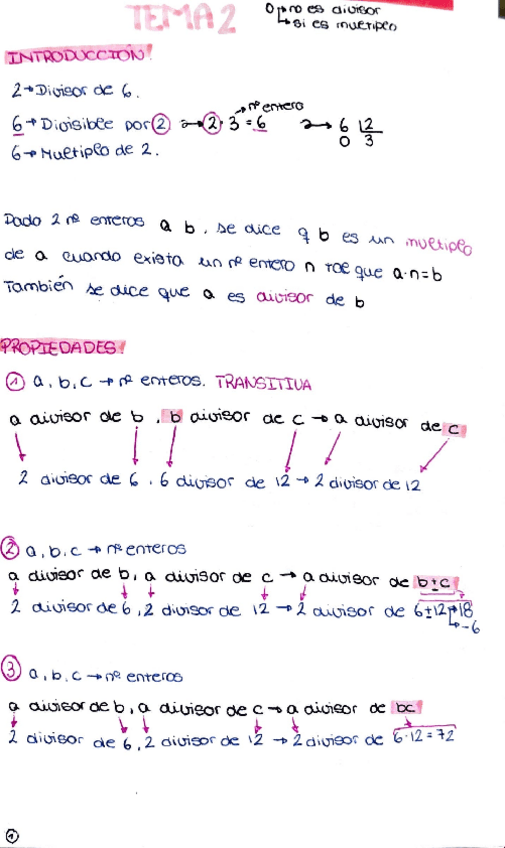 TEMA 2
0 → no es divisor
↳ si es multiplo
INTRODUCCIÓN!
2 → Divisor de 6.
6 → Divisible por 2 → 2·3 = 6 → nº entero → 6 |2
0 3
6 → Multiplo de 2.
Dado 2 nº enteros a b, se dice q b es un multiplo
de a cuando exista un nº entero n tal que a·n=b
También se dice que a es divisor de b
PROPIEDADES!
① a, b, c → nº enteros. TRANSITIVA
a divisor de b, b divisor de c → a divisor de c
2 divisor de 6, 6 divisor de 12 → 2 divisor de 12
② a, b, c → nº enteros
a divisor de b, a divisor de c → a divisor de b±c
2 divisor de 6, 2 divisor de 12 → 2 divisor de 6±12 → 18
↳ -6
③ a, b, c → nº enteros
a divisor de b, a divisor de c → a divisor de bc
2 divisor de 6, 2 divisor de 12 → 2 divisor de 6·12 = 72
①